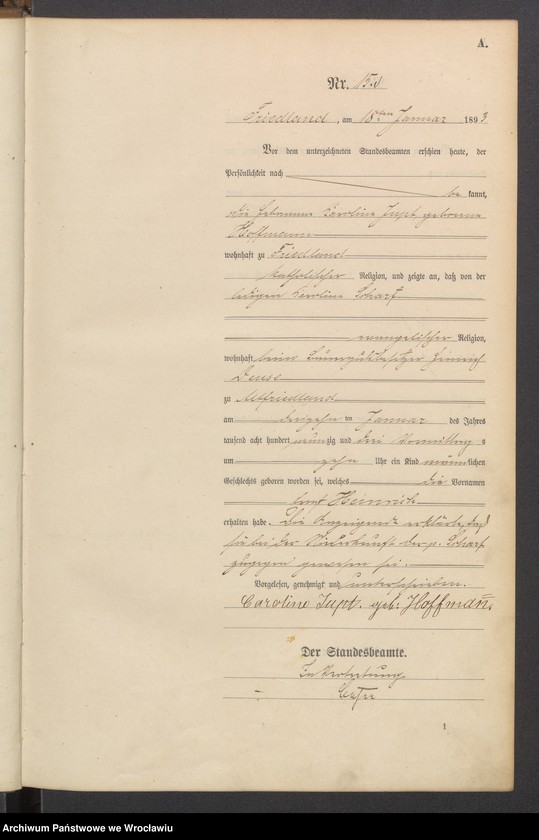 A.
Nr. 15.
Friedland, am 15ten Januar 1893
Vor dem unterzeichneten Standesbeamten erschien heute, der
Persönlichkeit nach
be kannt,
die Hebamme Karoline Jupt geborene
Hoffmann
wohnhaft zu Friedland
katholischer Religion, und zeigte an, daß von der
ledigen Karoline Scharf
evangelischer Religion,
wohnhaft beim Bauergutsbesitzer Heinrich
zu Altfriedland
am dreizehn ten Januar des Jahres
tausend acht hundert neunzig und drei Vormittags
um zehn Uhr ein Kind männlichen
Geschlechts geboren worden sei, welches die Vornamen
Heinrich
erhalten habe. Die Anzeigende erklärte, daß
sie bei der Niederkunft der p. Scharf
zugegen gewesen sei.
Vorgelesen, genehmigt und unterschrieben.
Caroline Jupt. geb: Hoffmañ.
Der Standesbeamte.
In Vertretung
1
Archiwum Państwowe we Wrocławiu